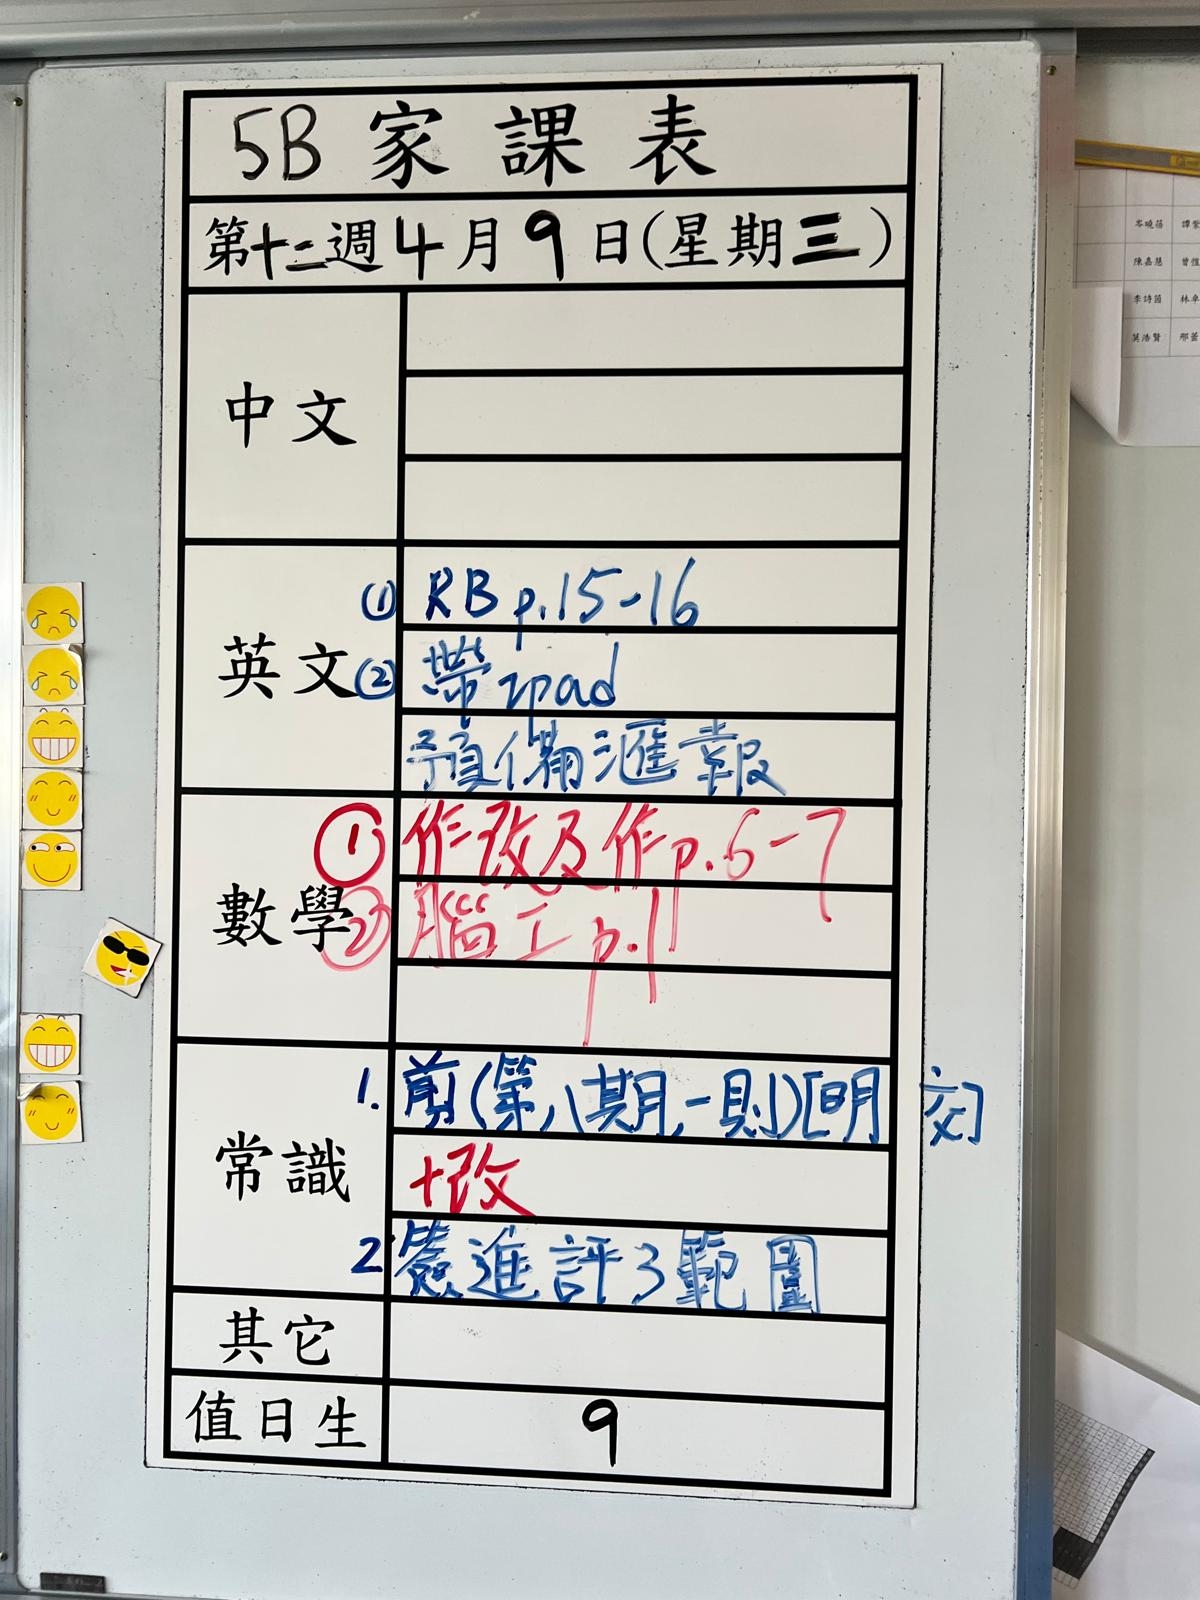 5B 家課表
第十二週4月9日(星期三)
中文
英文
① RB p.15-16
② 帶ipad
預備滙報
數學
① 作改及作p.6-7
② 腦工p.1
常識
1. 剪(第八期,一則)[明交]
+改
2. 簽進評3範圍
其它
值日生
9
岑曉蓓
陳嘉慧
李詩茵
莫浩賢